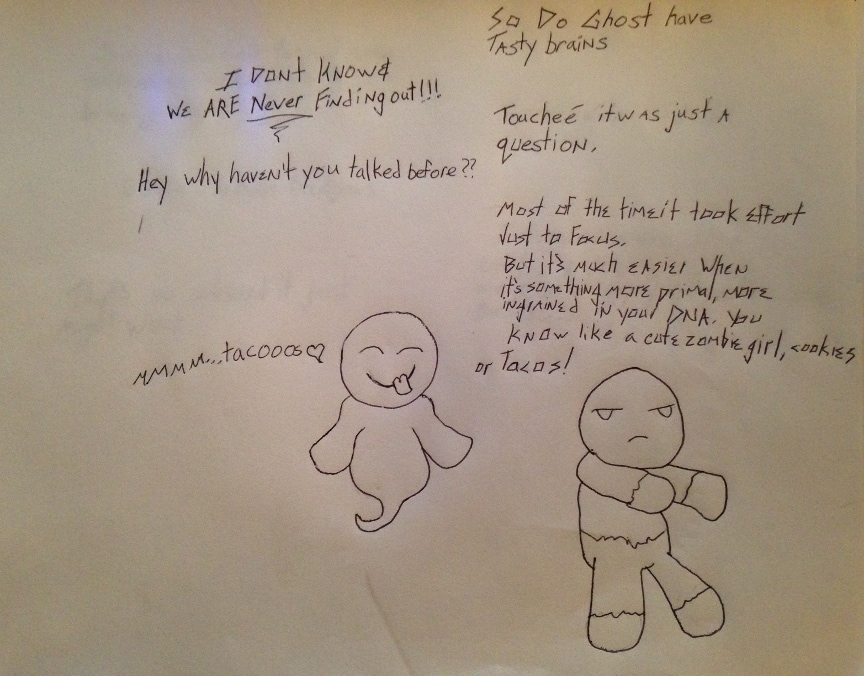 So Do Ghost have
Tasty brains
I Dont Know &
We ARE Never Finding out!!!
Toucheé it was just A
question.
Hey why haven't you talked before??
Most of the time it took effort
Just to Focus.
But it's much easier when
it's something more primal, more
ingrained in your DNA. You
know like a cute zombie girl, cookies
or Tacos!
mmmm...tacooos♡